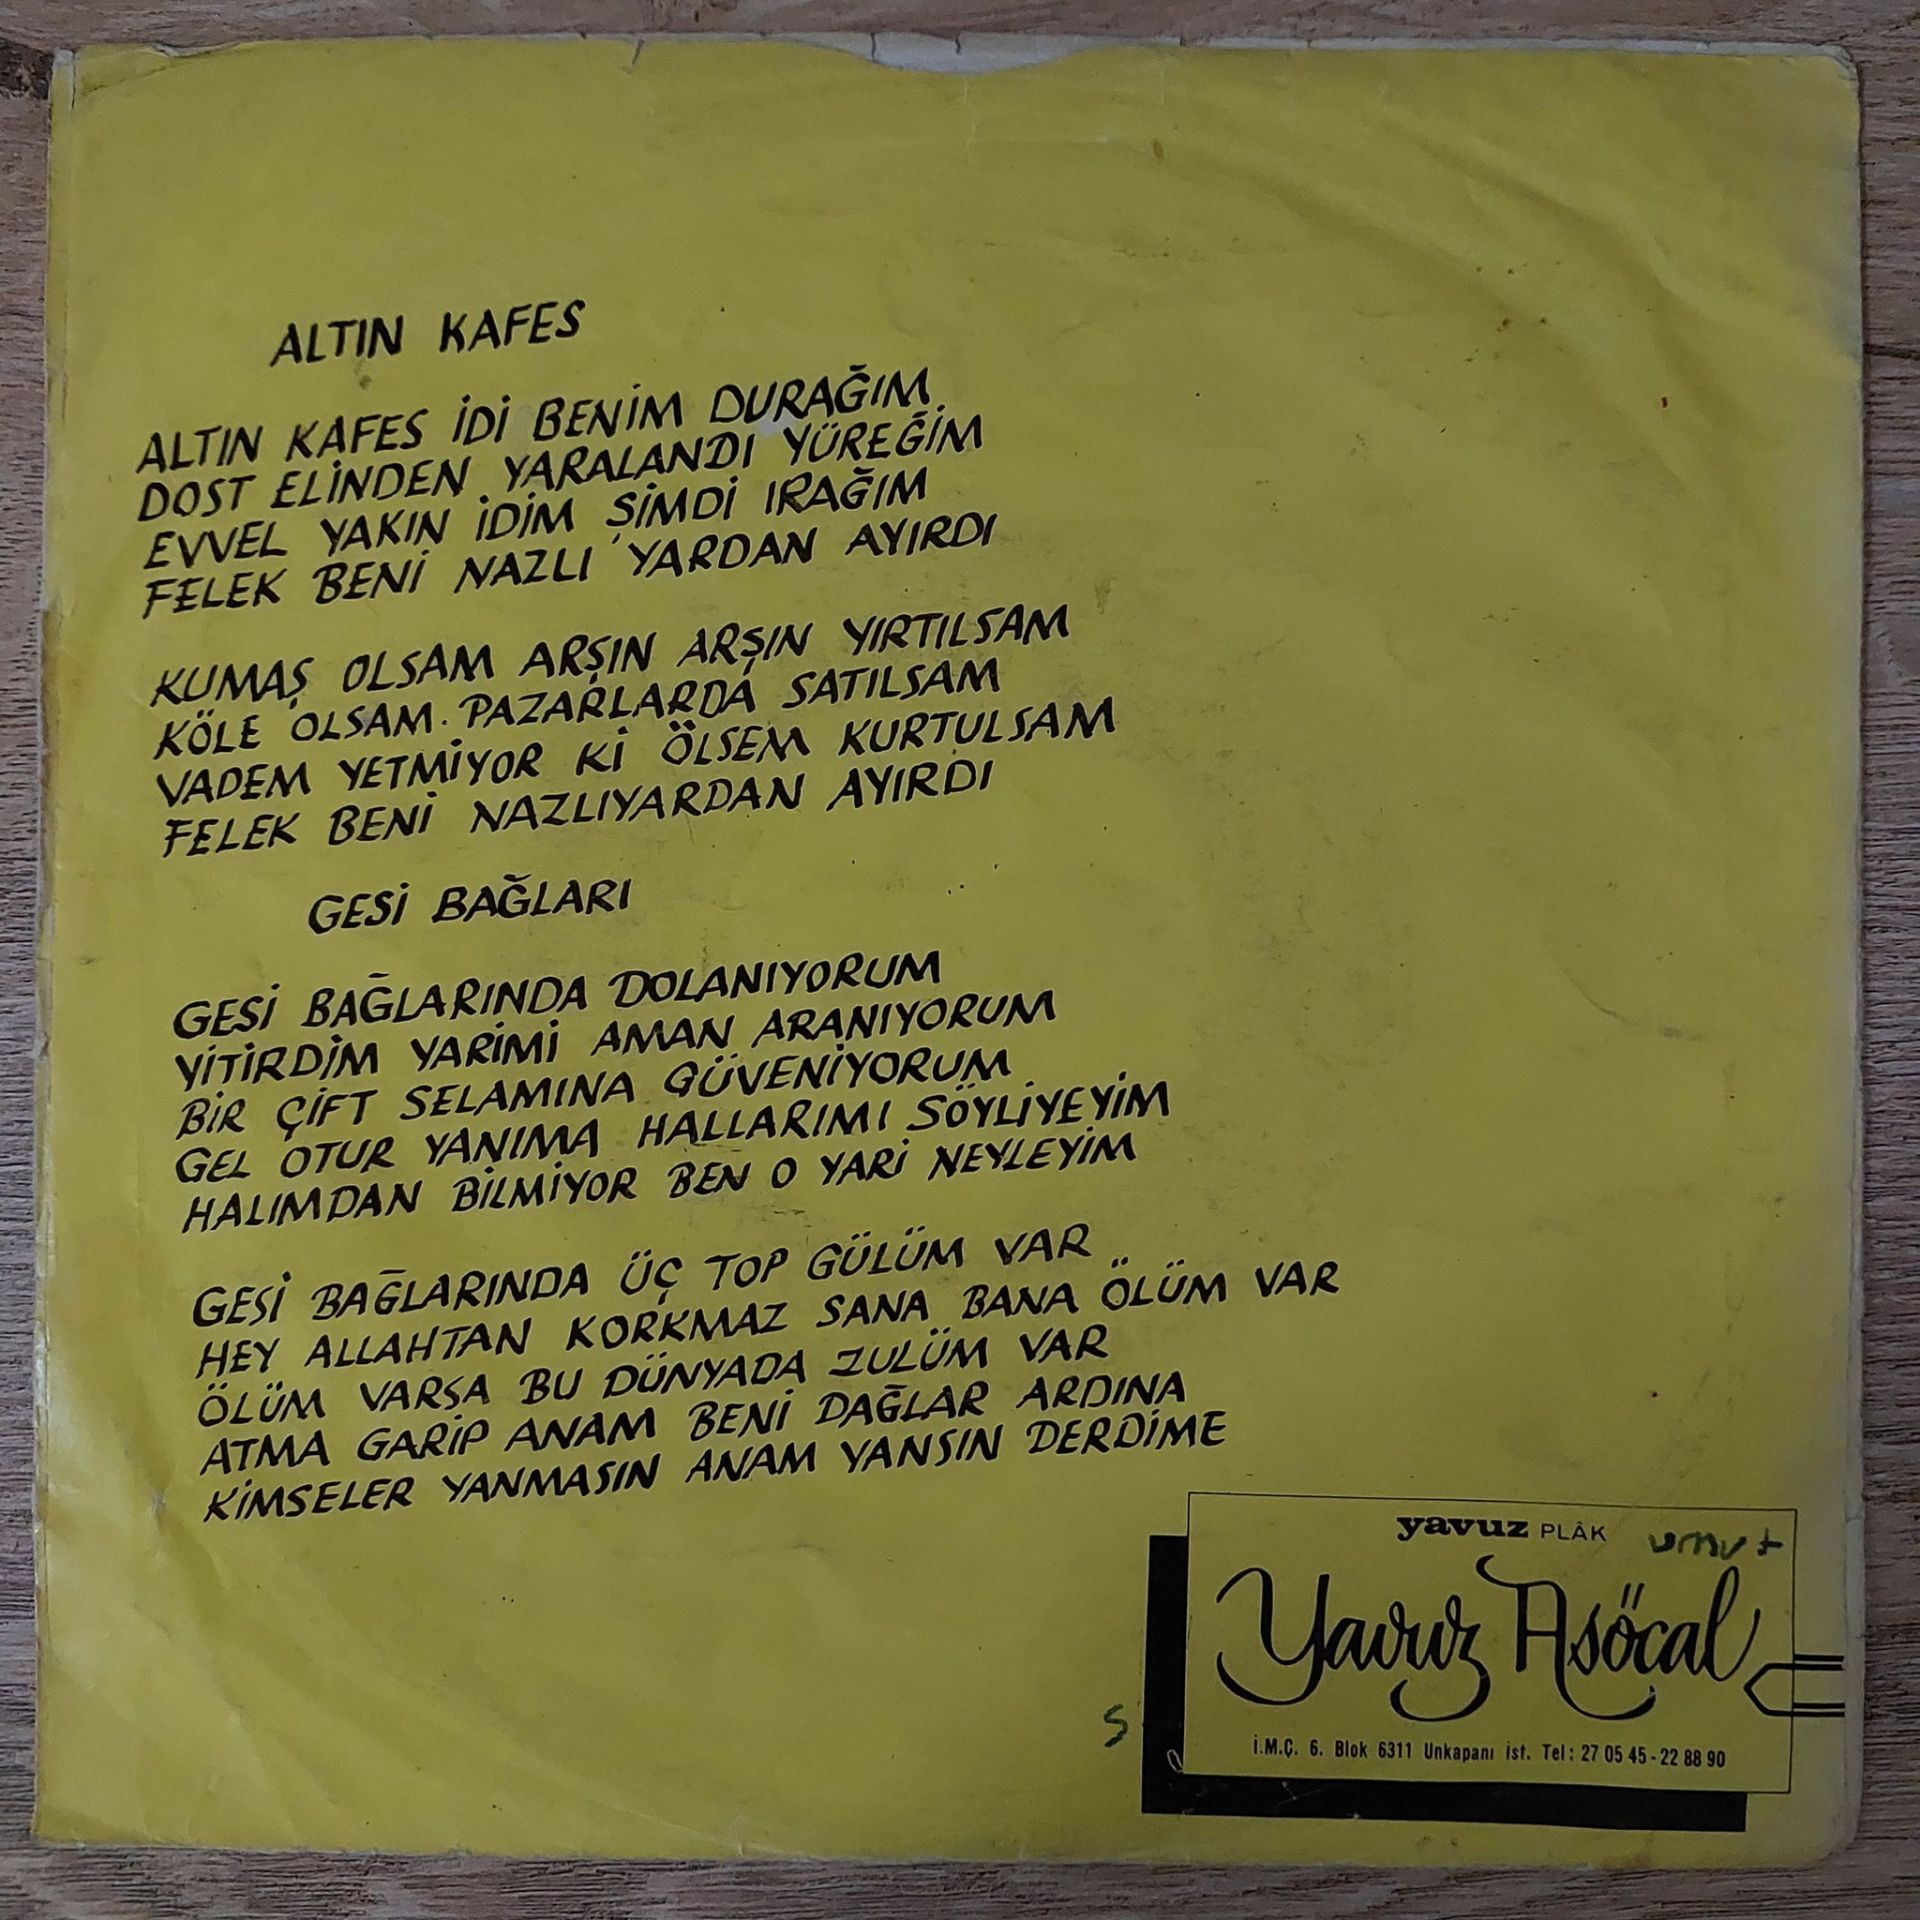 ALTIN KAFES
ALTIN KAFES İDİ BENİM DURAĞIM
DOST ELİNDEN YARALANDI YÜREĞİM
EVVEL YAKIN İDİM ŞİMDİ IRAĞIM
FELEK BENİ NAZLI YARDAN AYIRDI
KUMAŞ OLSAM ARŞIN ARŞIN YIRTILSAM
KÖLE OLSAM. PAZARLARDA SATILSAM
VADEM YETMİYOR Kİ ÖLSEM KURTULSAM
FELEK BENİ NAZLIYARDAN AYIRDI
GESİ BAĞLARI
GESİ BAĞLARINDA DOLANIYORUM
YİTİRDİM YARİMİ AMAN ARANIYORUM
BİR ÇİFT SELAMINA GÜVENİYORUM
GEL OTUR YANIMA HALLARIMI SÖYLİYEYİM
HALIMDAN BİLMİYOR BEN O YARİ NEYLEYİM
GESİ BAĞLARINDA ÜÇ TOP GÜLÜM VAR
HEY ALLAHTAN KORKMAZ SANA BANA ÖLÜM VAR
ÖLÜM VARSA BU DÜNYADA ZULÜM VAR
ATMA GARİP ANAM BENİ DAĞLAR ARDINA
KİMSELER YANMASIN ANAM YANSIN DERDİME
yavuz PLÂK
umut
Yavuz Asöcal
S
İ.M.Ç. 6. Blok 6311 Unkapanı ist. Tel: 27 05 45 - 22 88 90